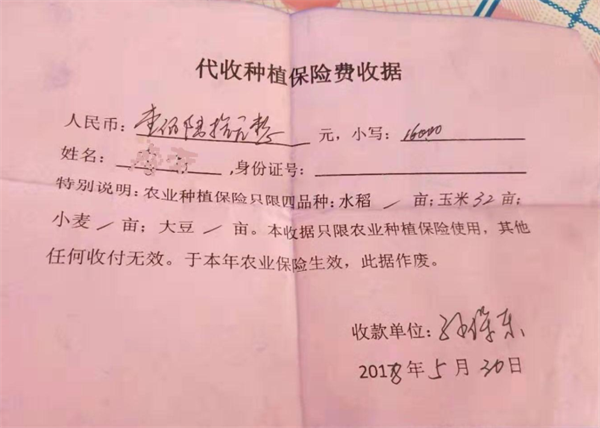 代收种植保险费收据
人民币：壹佰陆拾元整 元，小写：160.00
姓名： ,身份证号：
特别说明：农业种植保险只限四品种：水稻 / 亩；玉米32亩；
小麦 / 亩；大豆 / 亩。本收据只限农业种植保险使用，其他
任何收付无效。于本年农业保险生效，此据作废。
收款单位：孙保东
2018年5月30日